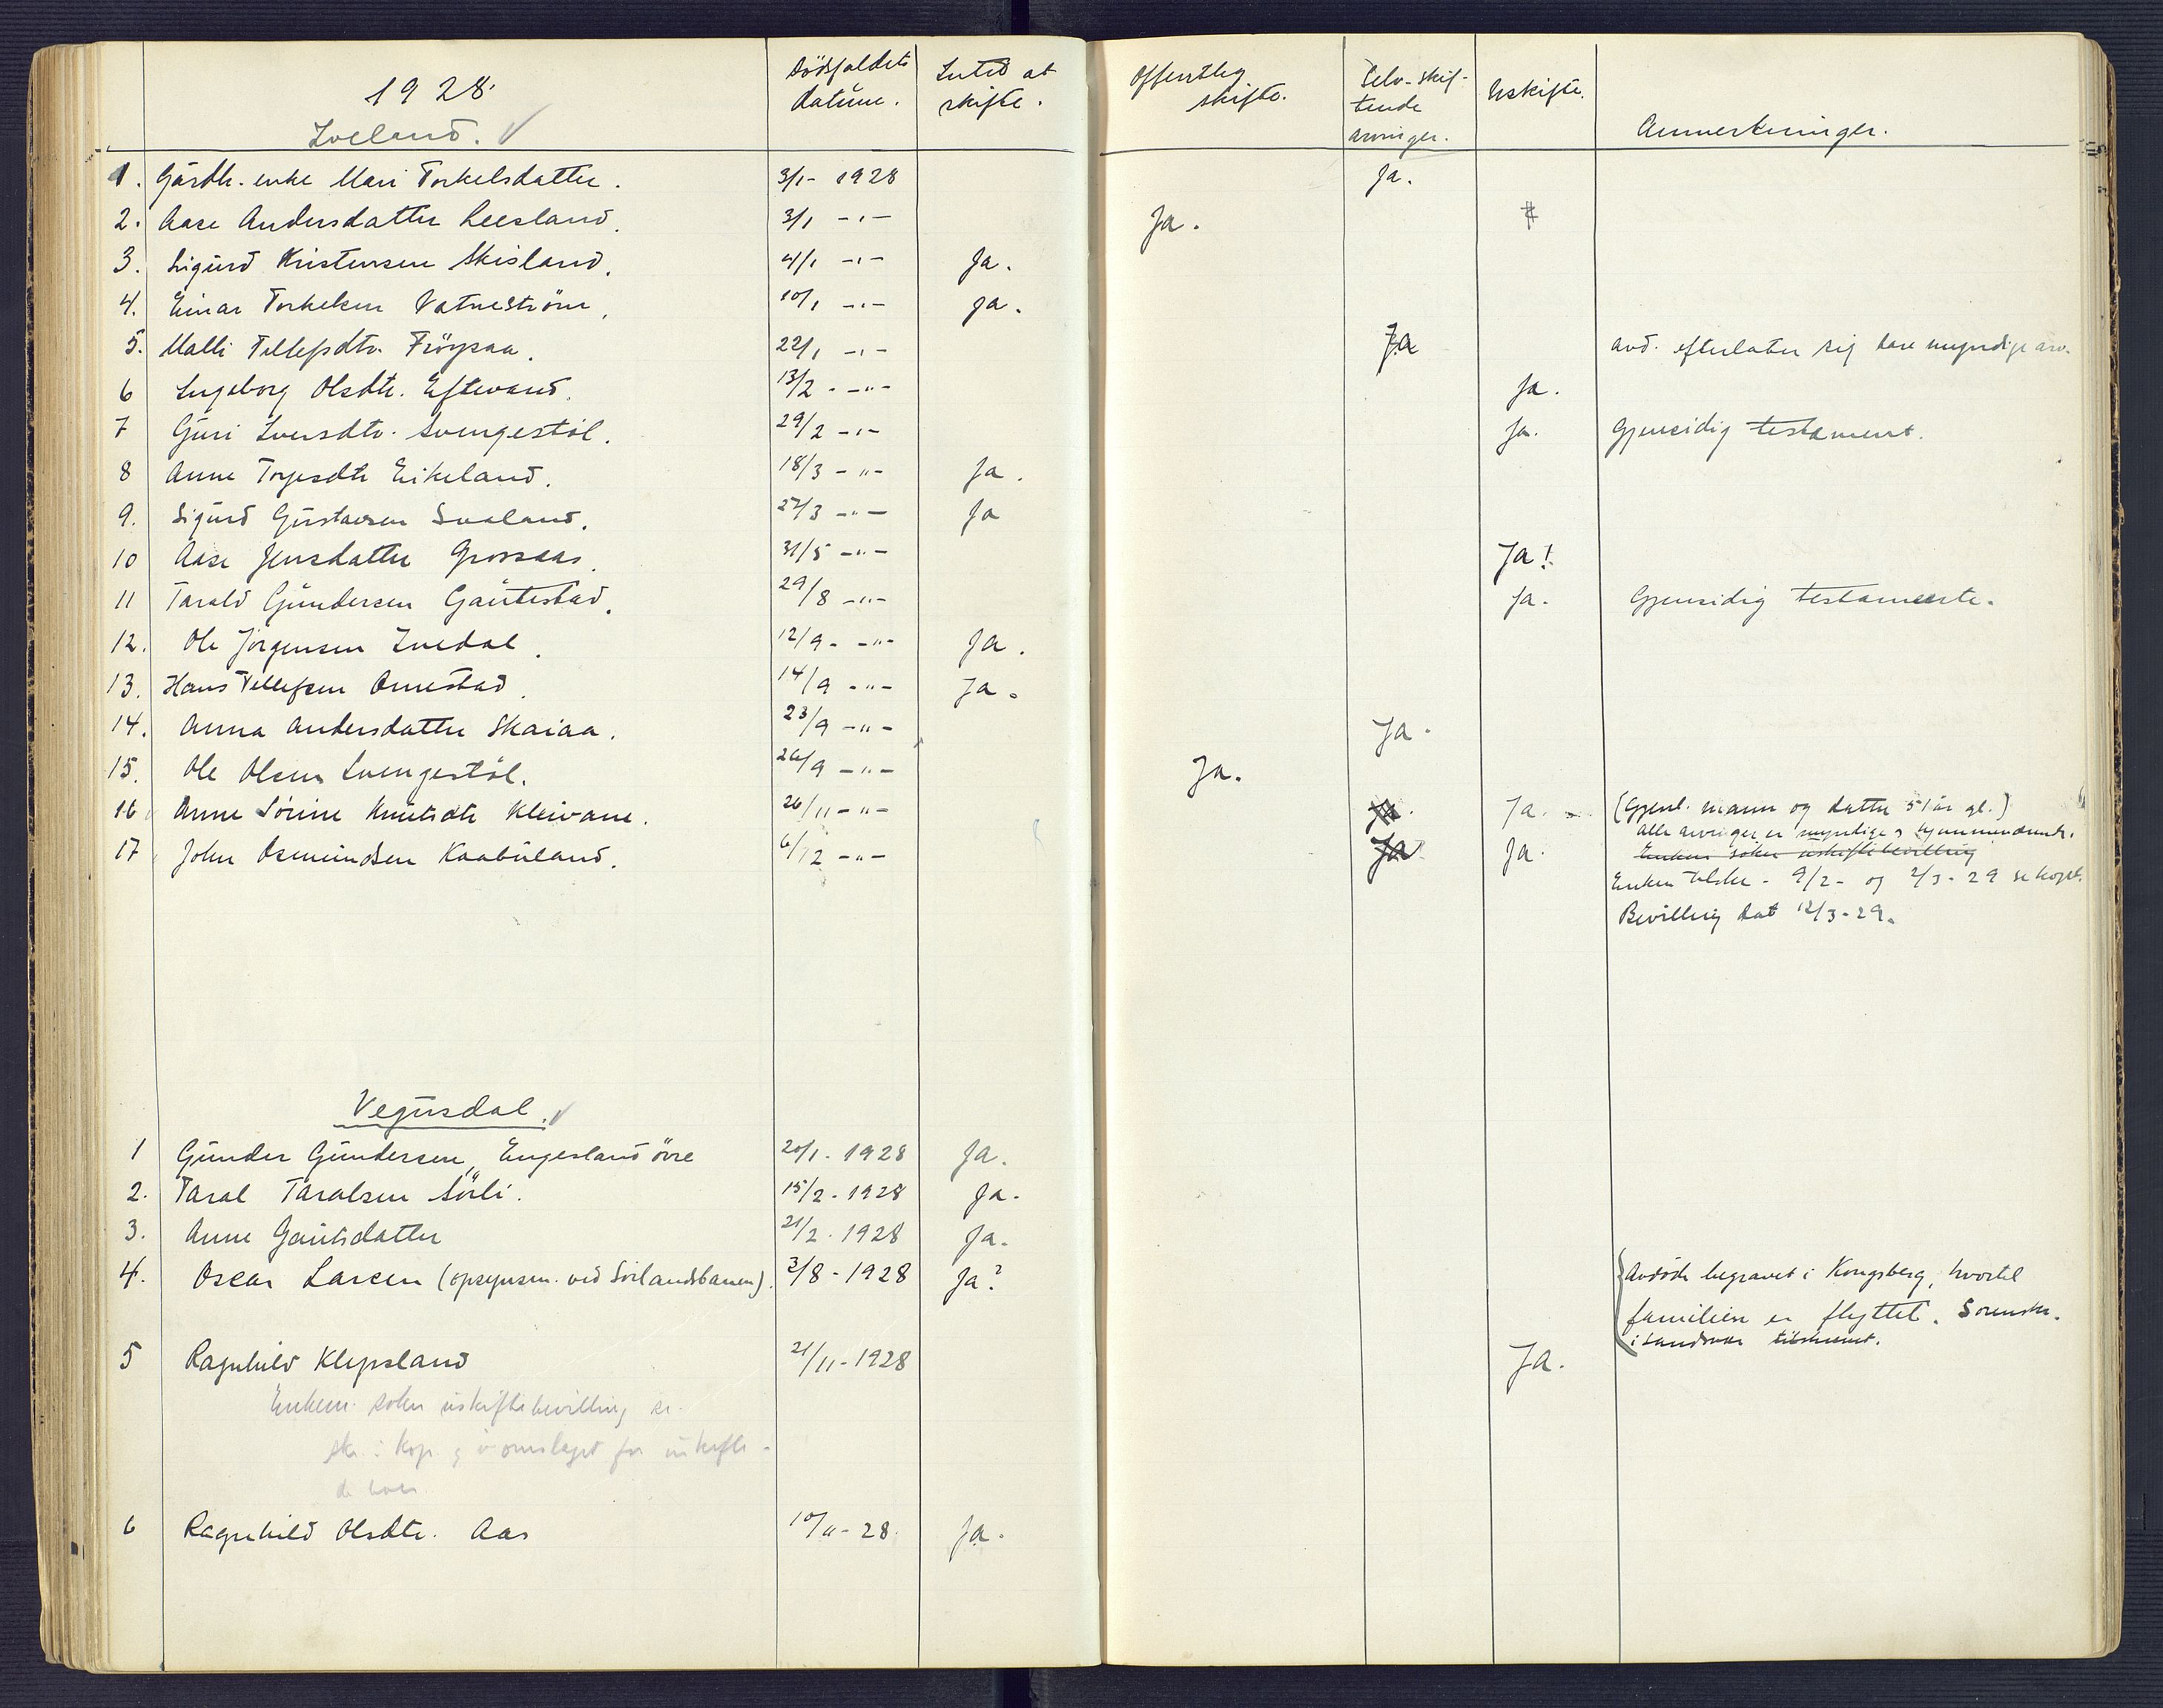 1928.
Iveland.
Dödsfaldets datum.
Intet at skifte.
Offentlig skifte.
Selv-skiftende arvinger.
Uskifte.
Anmerkninger.
1. Gårdb. enke Mari Torkelsdatter. 3/1 - 1928 Ja.
2. Aase Andersdatter Leesland. 3/1 -"- Ja.
3. Sigurd Kristensen Skisland. 4/1 -"- Ja.
4. Einar Torkelsen Vatneström. 10/1 -"- Ja.
5. Malli Tellefsdtr. Fröysaa. 22/1 -"- Ja avd. efterlater sig bare myndige arv.
6 Ingeborg Olsdtr. Eftevand. 13/2 - -"- Ja.
7 Guri Iversdtr. Svengestöl. 29/2 -"- Ja. Gjensidig testament.
8 Anne Torjesdtr Eikeland. 18/3 -"- Ja.
9. Sigurd Gustavsen Sualand. 27/3 -"- Ja
10 Aase Jensdatter Grossaas. 31/5 -"- Ja!
11 Tarald Gundersen Gautestad. 29/8 -"- Ja. Gjensidig testamente.
12. Ole Jörgensen Ivedal. 12/9 - -"- Ja.
13. Hans Tellefsen Omestad. 14/9 -"- Ja.
14. Anna Andersdatter Skaiaa. 23/9 -"- Ja.
15. Ole Olsen Svengestöl. 26/9 -"- Ja.
16 Anne Sörine Knutsdtr Kleivane. 26/11 -"- Ja. Ja. (Gjenl. mann og datter 51 år gl.)
alle arvinger er myndige
17 John Osmundsen Kaabuland. 6/12 -"- Ja Ja. Enken söker uskiftebevilling
Enken 9/2 - og 2/3 - 29 se kopi.
Bevilling dat 12/3 - 29.
Vegusdal.
1 Gunder Gundersen, Engesland övre 20/1 - 1928 Ja.
2. Taral Taralsen Sörli. 15/2 - 1928 Ja.
3. Anne Gautsdatter 21/2 - 1928 Ja.
4. Oscar Larsen (opsynsm. ved Sörlandsbanen). 3/8 - 1928 Ja? Avdöde begravet i Kongsberg, hvortil
familien er flyttet. Sorenskr.
i Sandsvær tilskrevet.
5 Ragnhild Klepsland 21/11 - 1928 Ja.
Enkem. söker uskiftebevilling se
kop. og i omslaget for uskifte-
6 Ragnhild Olsdtr. Aas 10/11 - 28. Ja.